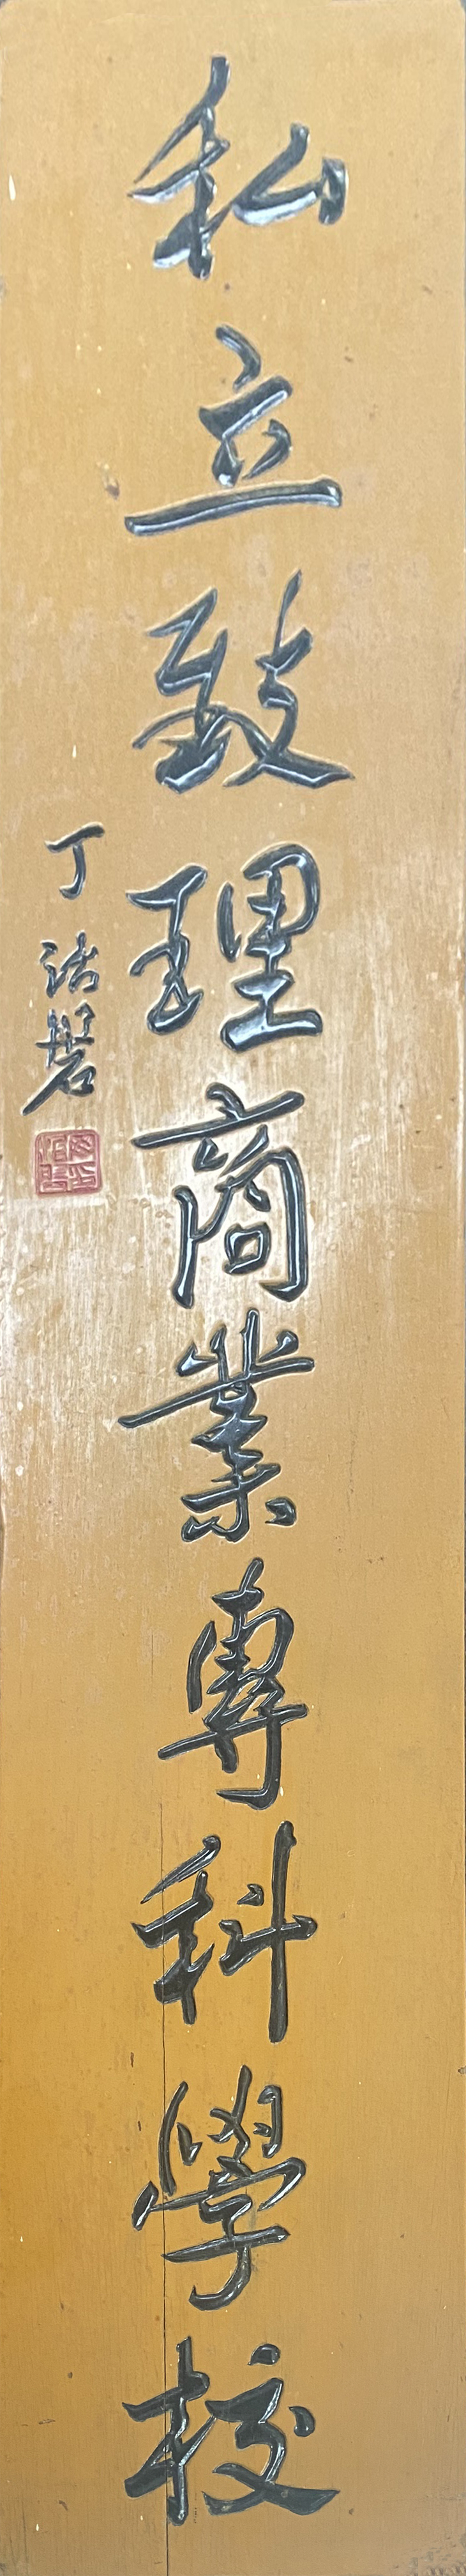 私立致理商業專科學校
丁治磐